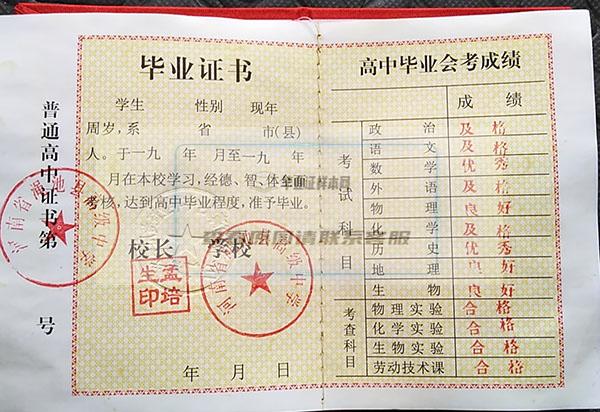 普通高中证书第 号
毕业证书
学生 性别 现年
周岁,系 省 市(县)
人。于一九 年 月至一九 年
月在本校学习,经德、智、体全面
考核,达到高中毕业程度,准予毕业。
校长 学校
孟培生印
年 月 日
高中毕业会考成绩
成绩
考试科目
政治 及格
语文 及格
数学 优秀
外语 及格
物理 良好
化学 及格
历史 优秀
地理 良好
生物 良好
考查科目
物理实验 合格
化学实验 合格
生物实验 合格
劳动技术课 合格